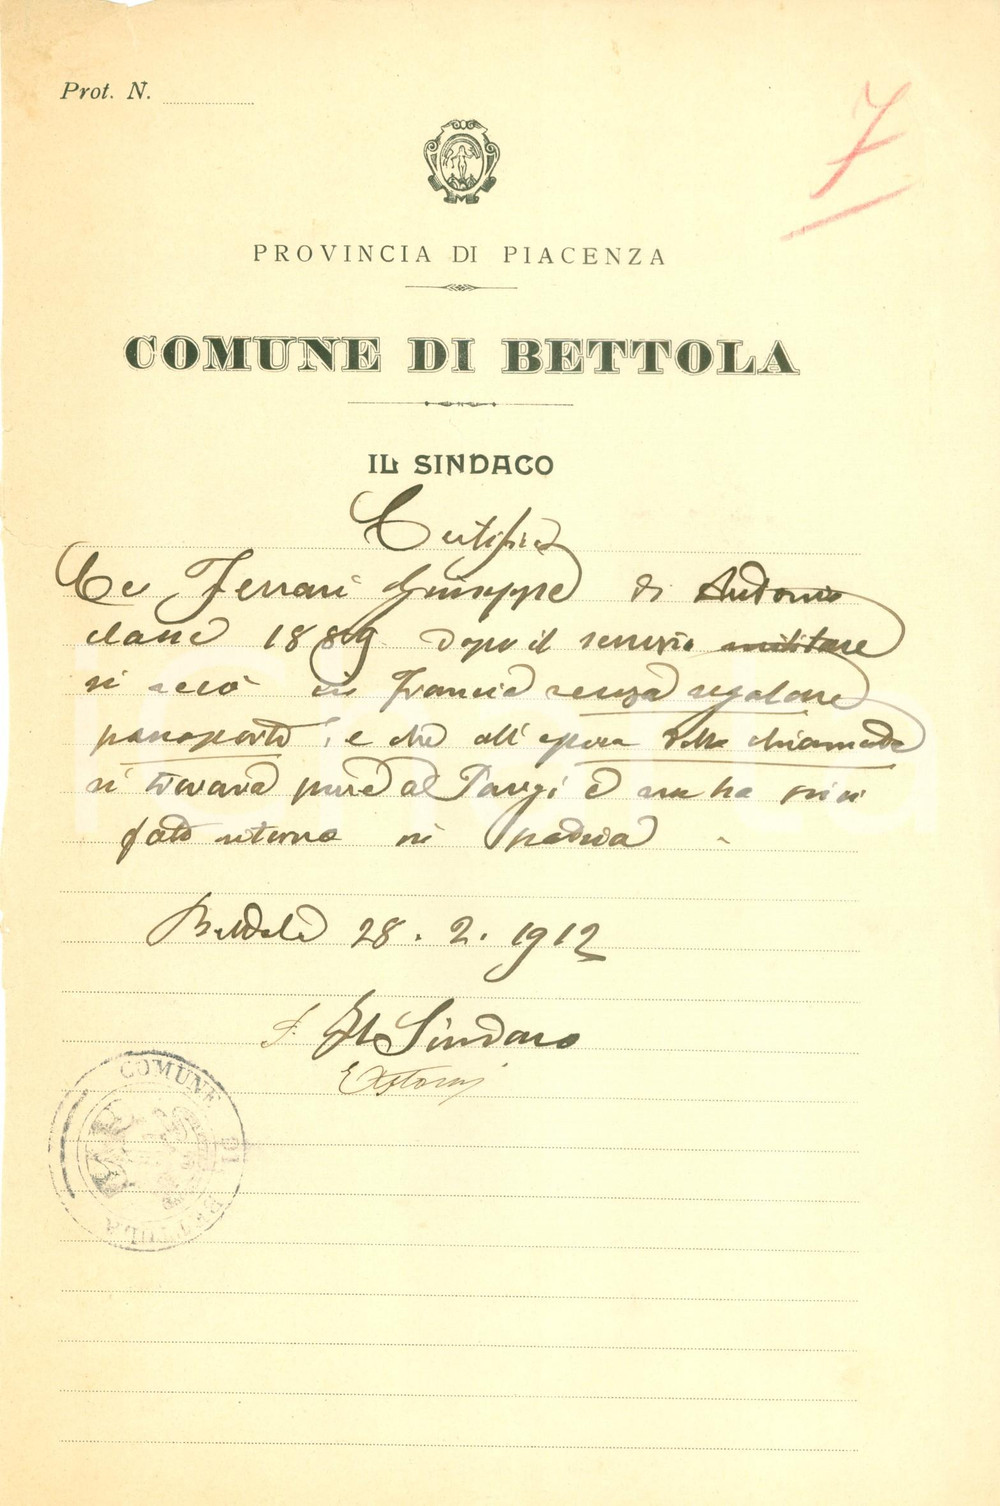 Prot. N.
7
PROVINCIA DI PIACENZA
COMUNE DI BETTOLA
IL SINDACO
Certifica
Che Ferrari Giuseppe di Antonio
classe 1889 dopo il servizio militare
si recò in Francia senza regolare
passaporto, e che all'epoca della chiamata
si trovava pure a Parigi e non ha
fatto ritorno in patria
Bettola 28. 2. 1912
Il Sindaco
COMUNE DI BETTOLA